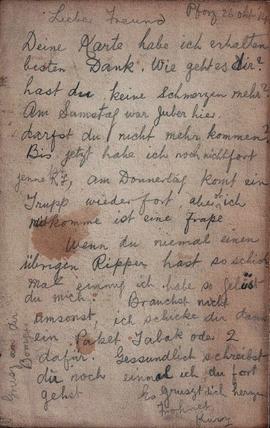 Pforz 26 okt. 14
Lieber Freund
Deine Karte habe ich erhalten
besten Dank. Wie geht es dir?
hast du keine Schmerzen mehr?
Am Samstag war Juber hier.
darfst du nicht mehr kommen?
Bis jetzt habe ich noch nicht fort
am Donnerstag komt ein
Trupp wieder fort, aber ich
mitkomme ist eine frage
Wenn du niemal einen
übrigen Ripper hast so schick
mal ich habe so gelüst
du mich. Brauchst nicht
umsonst, ich schicke dir dann
ein Paket Tabak oder 2
dafür. Gessundlich schreibst
du noch einmal ich du fort
gehst
Es grüszt dich herzen
Gruss an die